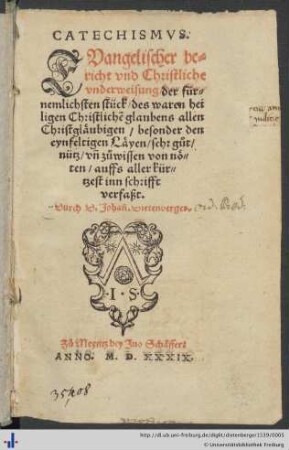 CATECHISMVS.
EVangelischer be-
richt vnd Christliche
vnderweisung der für-
nemlichsten stück / des waren hei
ligen Christlichē glaubens allen
Christgläubigen / besonder den
eynfeltigen Läyen / seht gůt /
nütz / vñ zůwissen von nö-
ten / auffs aller kür-
tzest inn schrifft
verfaßt.
Durch D. Johañ. Dietenberger.
I S
Zů Meyntz bey Juo Schöffer
ANNO. M. D. XXXIX.
35,408
http://dl.ub.uni-freiburg.de/diglit/dietenberger1539/0005
© Universitätsbibliothek Freiburg